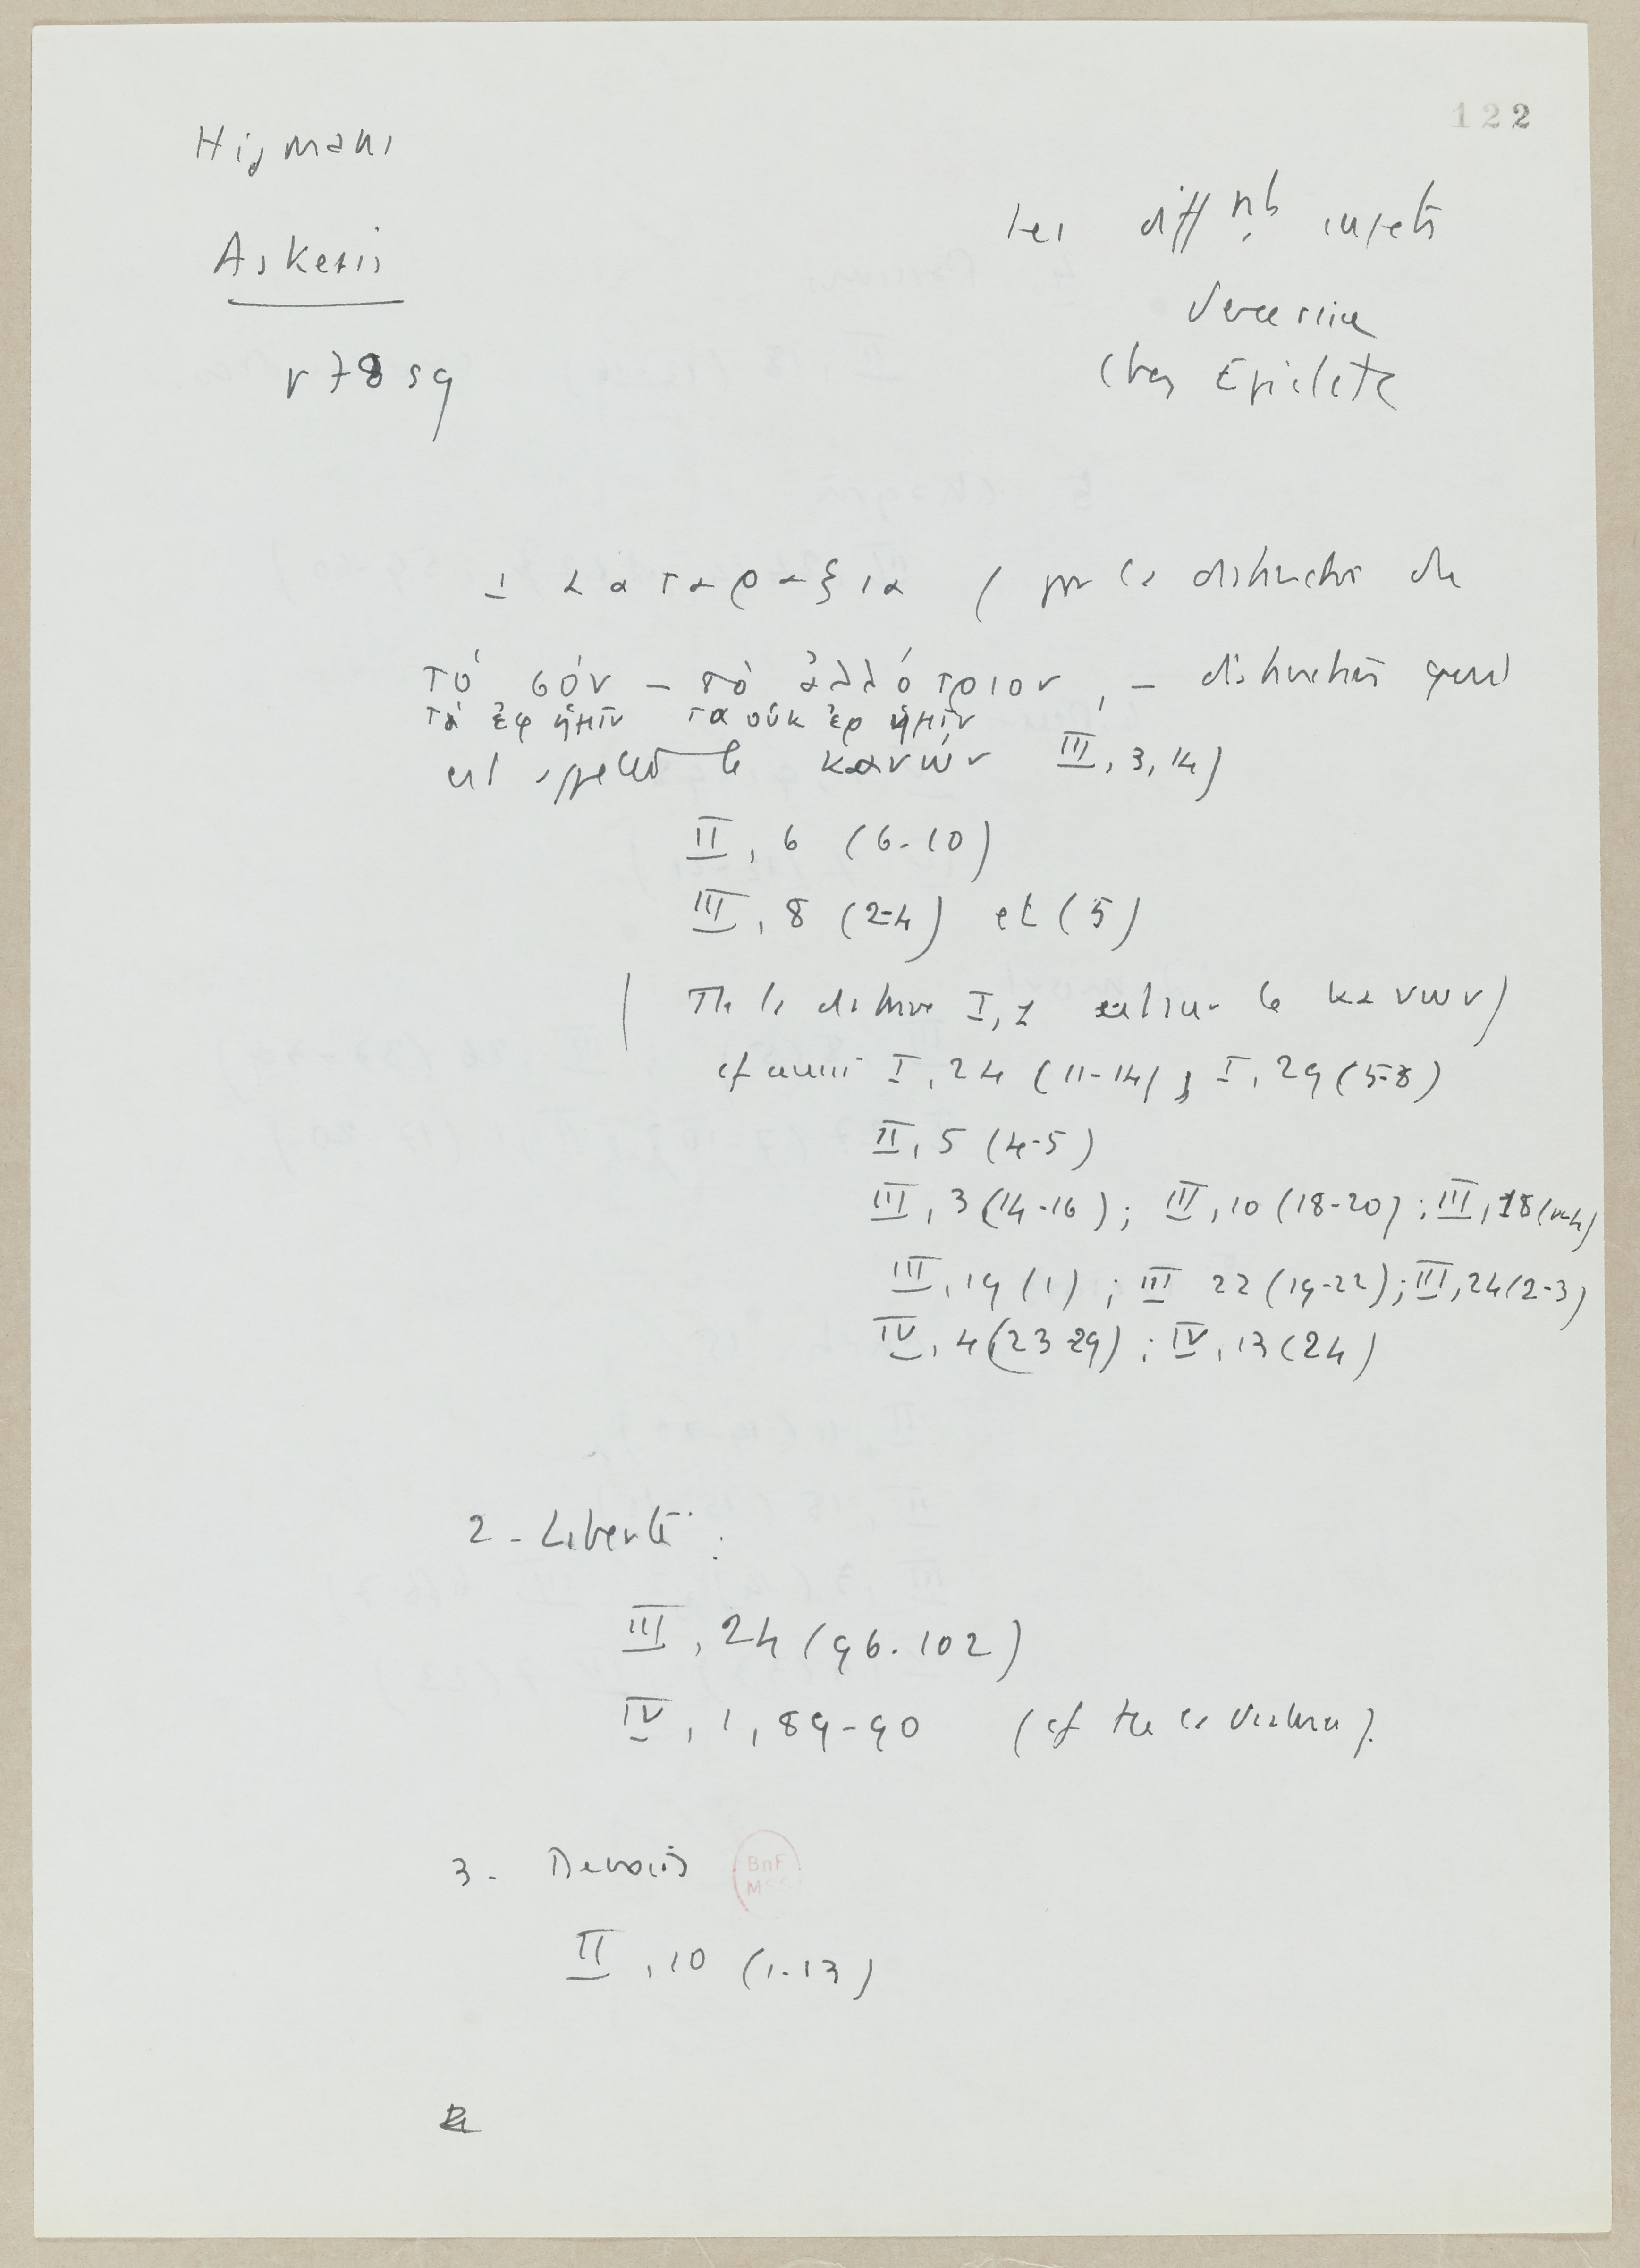 122
Hijmans
Askesis
p 78 sq
Les diff nb sujets
d'exercice
chez Epictete
1 αταραξια (par la distinction de
τὸ σόν – τὸ ἀλλότριον, – distinction qui
τὰ ἐφ ἡμῖν τα οὐκ ἐφ ἡμῖν
est appelée le κανών III, 3, 14)
II, 6 (6-10)
III, 8 (2-4) et (5)
( Tte la I, 1 est sur le κανων)
cf aussi I, 24 (11-14) ; I, 29 (5-8)
II, 5 (4-5)
III, 3 (14-16) ; III, 10 (18-20) ; III, 18
III, 19 (1) ; III 22 (19-22) ; III, 24 (2-3)
IV, 4 (23 29) ; IV, 13 (24)
2 - Liberté :
III, 24 (96-102)
IV, 1, 89-90 (cf tte la
3 - Devoirs
BnF
MSS
II, 10 (1-13)